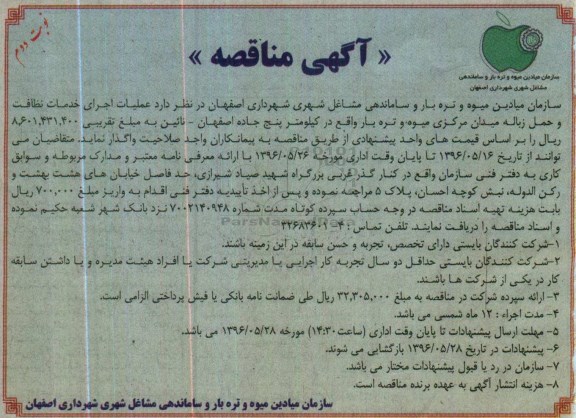 نوبت دوم
« آگهی مناقصه »
سازمان میادین میوه و تره بار و ساماندهی
مشاغل شهری شهرداری اصفهان
سازمان میادین میوه و تره بار و ساماندهی مشاغل شهری شهرداری اصفهان در نظر دارد عملیات اجرای خدمات نظافت
و حمل زباله میدان مرکزی میوه و تره بار واقع در کیلومتر پنج جاده اصفهان - نائین به مبلغ تقریبی ۸,۶۰۱,۴۳۱,۴۰۰
ریال را بر اساس قیمت های واحد پیشنهادی از طریق مناقصه به پیمانکاران واجد صلاحیت واگذار نماید. متقاضیان می
توانند از تاریخ ۱۳۹۶/۰۵/۱۶ تا پایان وقت اداری مورخه ۱۳۹۶/۰۵/۲۶ با ارائه معرفی نامه معتبر و مدارک مربوطه و سوابق
کاری به دفتر فنی سازمان واقع در کنار گذر غربی بزرگراه شهید صیاد شیرازی، حد فاصل خیابان های هشت بهشت و
رکن الدوله، نبش کوچه احسان، پلاک ۵ مراجعه نموده و پس از اخذ تأییدیه دفتر فنی اقدام به واریز مبلغ ۷۰۰,۰۰۰ ریال
بابت هزینه تهیه اسناد مناقصه در وجه حساب سپرده کوتاه مدت شماره ۷۰۰۲۱۴۰۹۴۸ نزد بانک شهر شعبه حکیم نموده
و اسناد مناقصه را دریافت نمایند. تلفن تماس : ۴-۳۲۶۸۳۶۰۱
۱-شرکت کنندگان بایستی دارای تخصص، تجربه و حسن سابقه در این زمینه باشند.
۲-شرکت کنندگان بایستی حداقل دو سال تجربه کار اجرایی با مدیریتی شرکت یا افراد هیئت مدیره و یا داشتن سابقه
کار در یکی از شرکت ها باشند.
۳- ارائه سپرده شرکت در مناقصه به مبلغ ۳۲,۳۰۵,۰۰۰ ریال طی ضمانت نامه بانکی یا فیش پرداختی الزامی است.
۴- مدت اجراء : ۱۲ ماه شمسی می باشد.
۵- مهلت ارسال پیشنهادات تا پایان وقت اداری (ساعت۱۴:۳۰) مورخه ۱۳۹۶/۰۵/۲۸ می باشد.
۶- پیشنهادات در تاریخ ۱۳۹۶/۰۵/۲۸ بازگشایی می شوند.
۷- سازمان در رد یا قبول پیشنهادات مختار می باشد.
۸- هزینه انتشار آگهی به عهده برنده مناقصه است.
سازمان میادین میوه و تره بار و ساماندهی مشاغل شهری شهرداری اصفهان